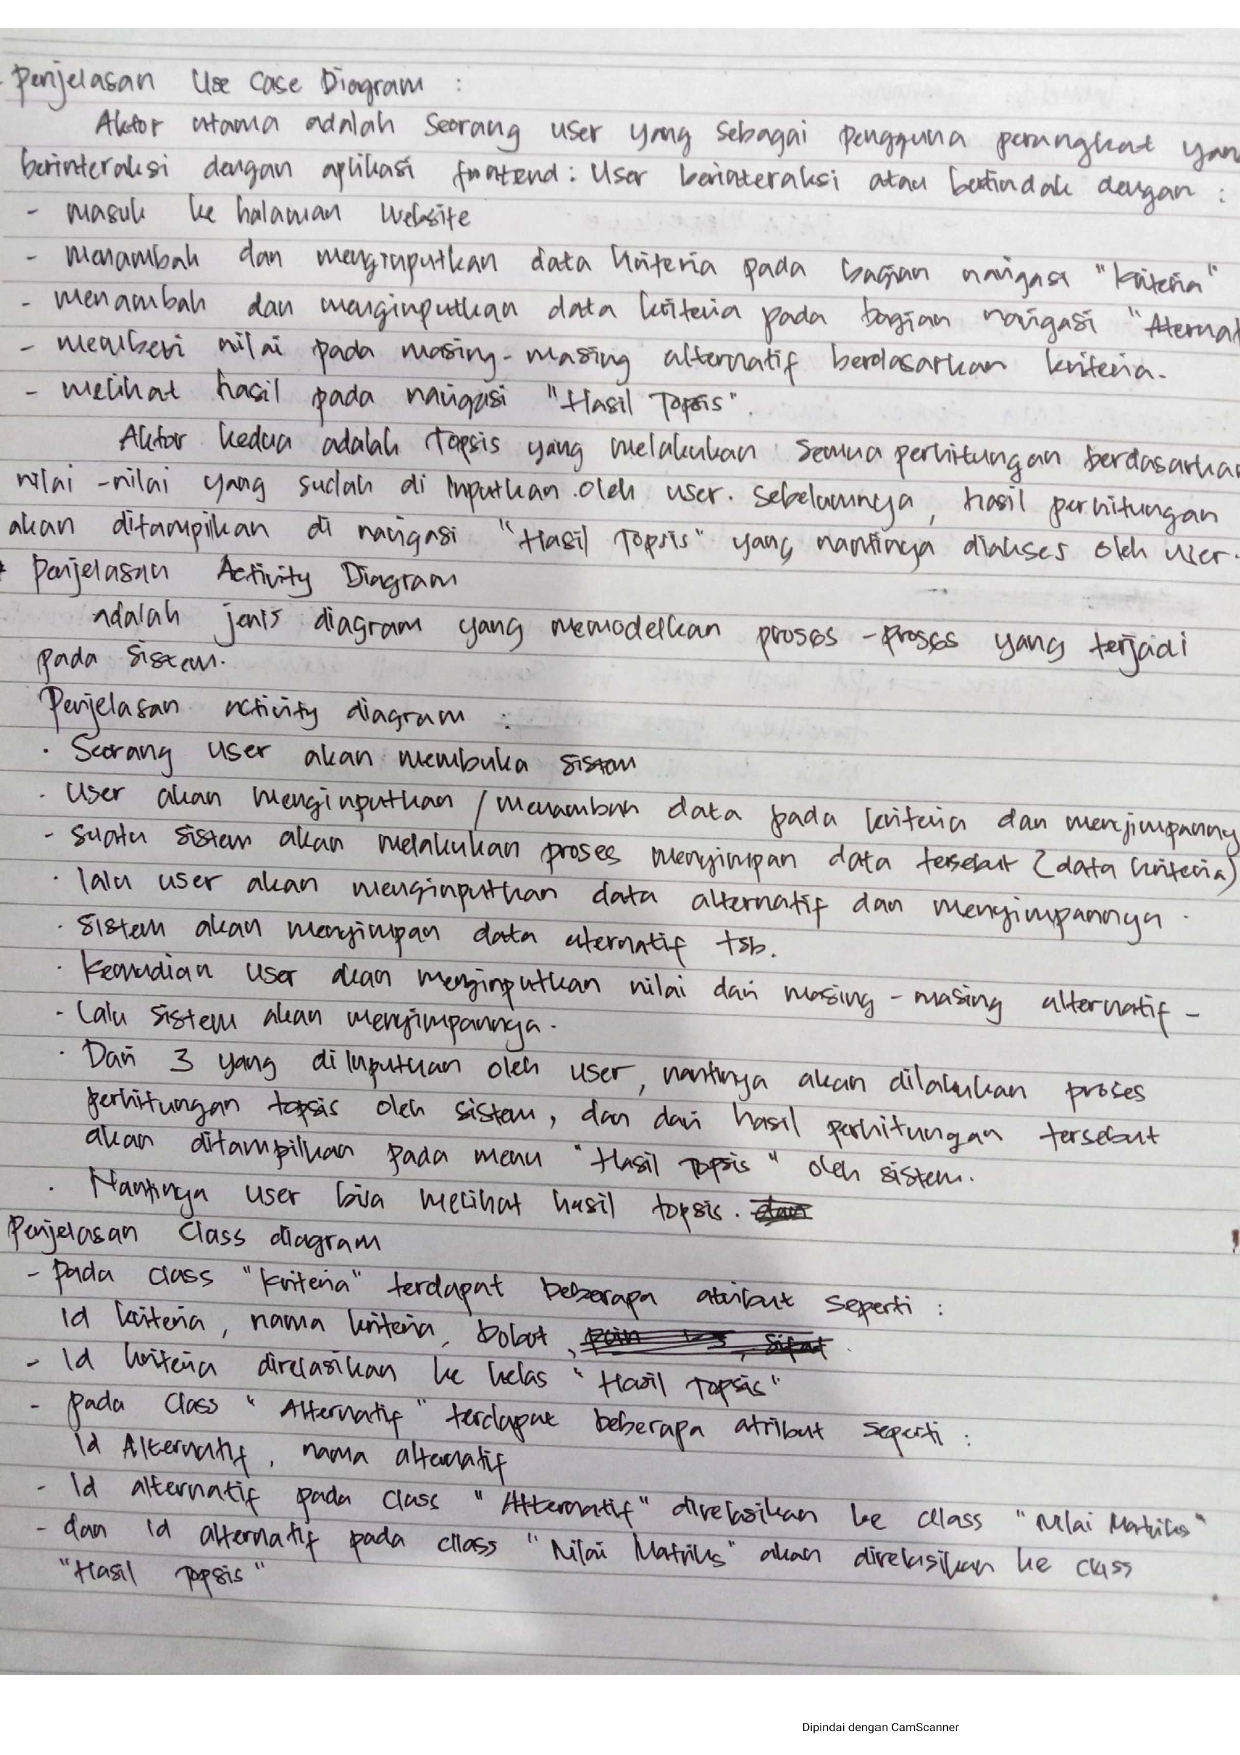 - Penjelasan Use Case Diagram :
Aktor utama adalah seorang user yang sebagai pengguna perangkat yan
berinteraksi dengan aplikasi frontend : User berinteraksi atau bertindak dengan :
- masuk ke halaman website
- menambah dan menginputkan data kriteria pada bagian navigasi "Kriteria"
- menambah dan menginputkan data kriteria pada bagian navigasi "Aternat
- memberi nilai pada masing-masing alternatif berdasarkan kriteria.
- melihat hasil pada navigasi "Hasil Topsis".
Aktor kedua adalah Topsis yang melakukan semua perhitungan berdasarkan
nilai-nilai yang sudah di inputkan oleh user. Sebelumnya, hasil perhitungan
akan ditampilkan di navigasi "Hasil Topsis" yang nantinya diakses oleh user.
Penjelasan Activity Diagram
adalah jenis diagram yang memodelkan proses-proses yang terjadi
pada sistem.
Penjelasan activity diagram :
· Seorang user akan membuka sistem
· User akan menginputkan / menambah data pada kriteria dan menyimpanny
- suatu sistem akan melakukan proses menyimpan data tersebut (data kriteria)
· lalu user akan menginputkan data alternatif dan menyimpannya.
· Sistem akan menyimpan data alternatif tsb.
· Kemudian user akan menginputkan nilai dari masing-masing alternatif -
- Lalu sistem akan menyimpannya.
· Dari 3 yang diinputkan oleh user, nantinya akan dilakukan proses
perhitungan topsis oleh sistem, dan dari hasil perhitungan tersebut
akan ditampilkan pada menu "Hasil Topsis" oleh sistem.
· Nantinya user bisa melihat hasil topsis. dan
Penjelasan Class diagram
- Pada class "Kriteria" terdapat beberapa atribut seperti :
Id kriteria, nama kriteria, bobot,
- Id kriteria direlasikan ke kelas "Hasil Topsis"
- Pada Class "Alternatif" terdapat beberapa atribut seperti :
Id Alternatif, nama alternatif
- Id alternatif pada class "Alternatif" direlasikan ke class "Nilai Matriks"
- dan Id alternatif pada class "Nilai Matriks" akan direlasikan ke class
"Hasil Topsis"
Dipindai dengan CamScanner